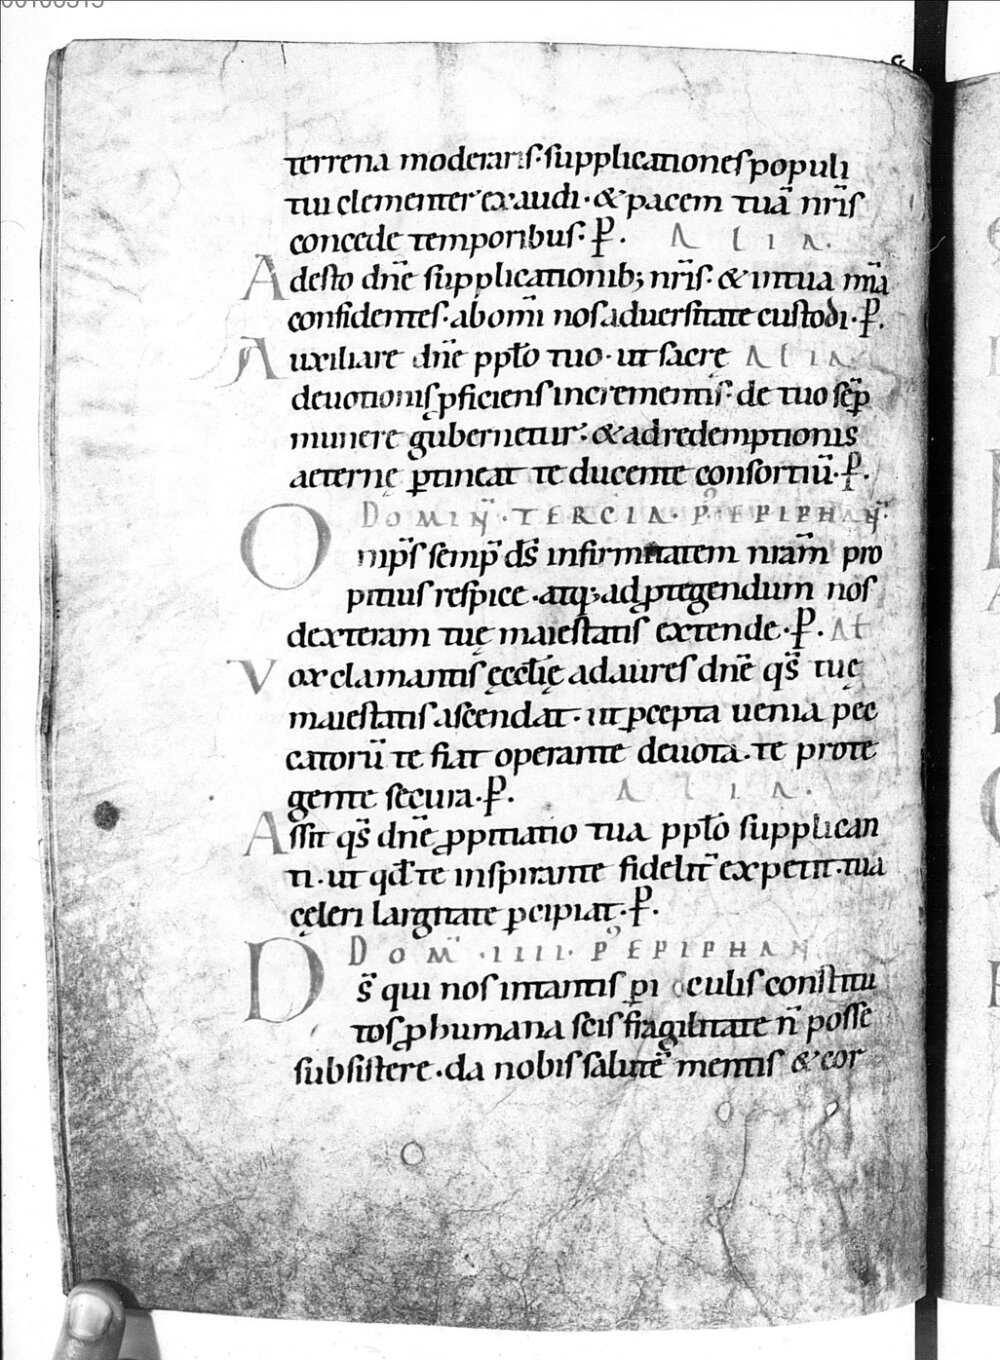 terrena moderaris·supplicationes populi
tui clementer exaudi·& pacem tuā nr̄is
concede temporibus·P̄. ALIA.
Adesto dn̄e supplicationib; nr̄is·& in tua mīa
confidentes·ab om̄i nos aduersitate custodi·P̄.
Auxiliare dn̄e pplo tuo·ut sacrę ALIA.
deuotionis ꝓficiens incrementis·de tuo sēp
munere gubernetur·& ad redemptionis
aeternę ꝑtineat te ducente consortiū·P̄.
DOMIN̄·TERCIA·P̊·EPIPHAN̄·
Omp̄s semp̄ ds̄ infirmitatem nr̄am pro
pitius respice·atq; ad ꝓtegendum nos
dexteram tuę maiestatis extende·P̄. Al
Vox clamantis ęcclīę ad aures dn̄e qs̄ tuę
maiestatis ascendat·ut ꝑcepta uenia pec
catorū te fiat operante deuota·te prote
gente secura·P̄. ALIA.
Assit qs̄ dn̄e ꝓpitiatio tua pplo supplican
ti·ut qd̄ te inspirante fidelit̄ expetit·tua
cęleri largitate ꝑcipiat·P̄.
DOM̄·IIII·P̊ EPIPHAN̄
Ds̄ qui nos in tantis ꝑiculis constitu
tos ꝓ humana scis fragilitate n̄ posse
subsistere·da nobis salutē mentis & cor